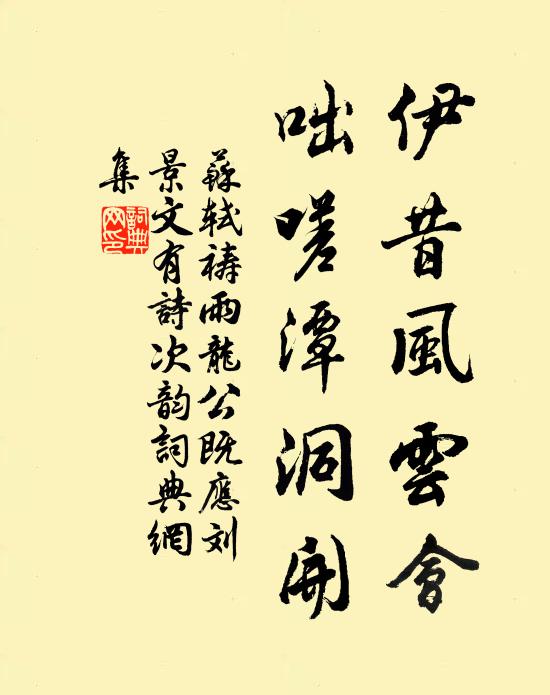 伊昔風雲會
咄嗟潭洞開
蘇軾禱雨龍公既應刘
景文有詩次韵詞典網
集
詞典網印